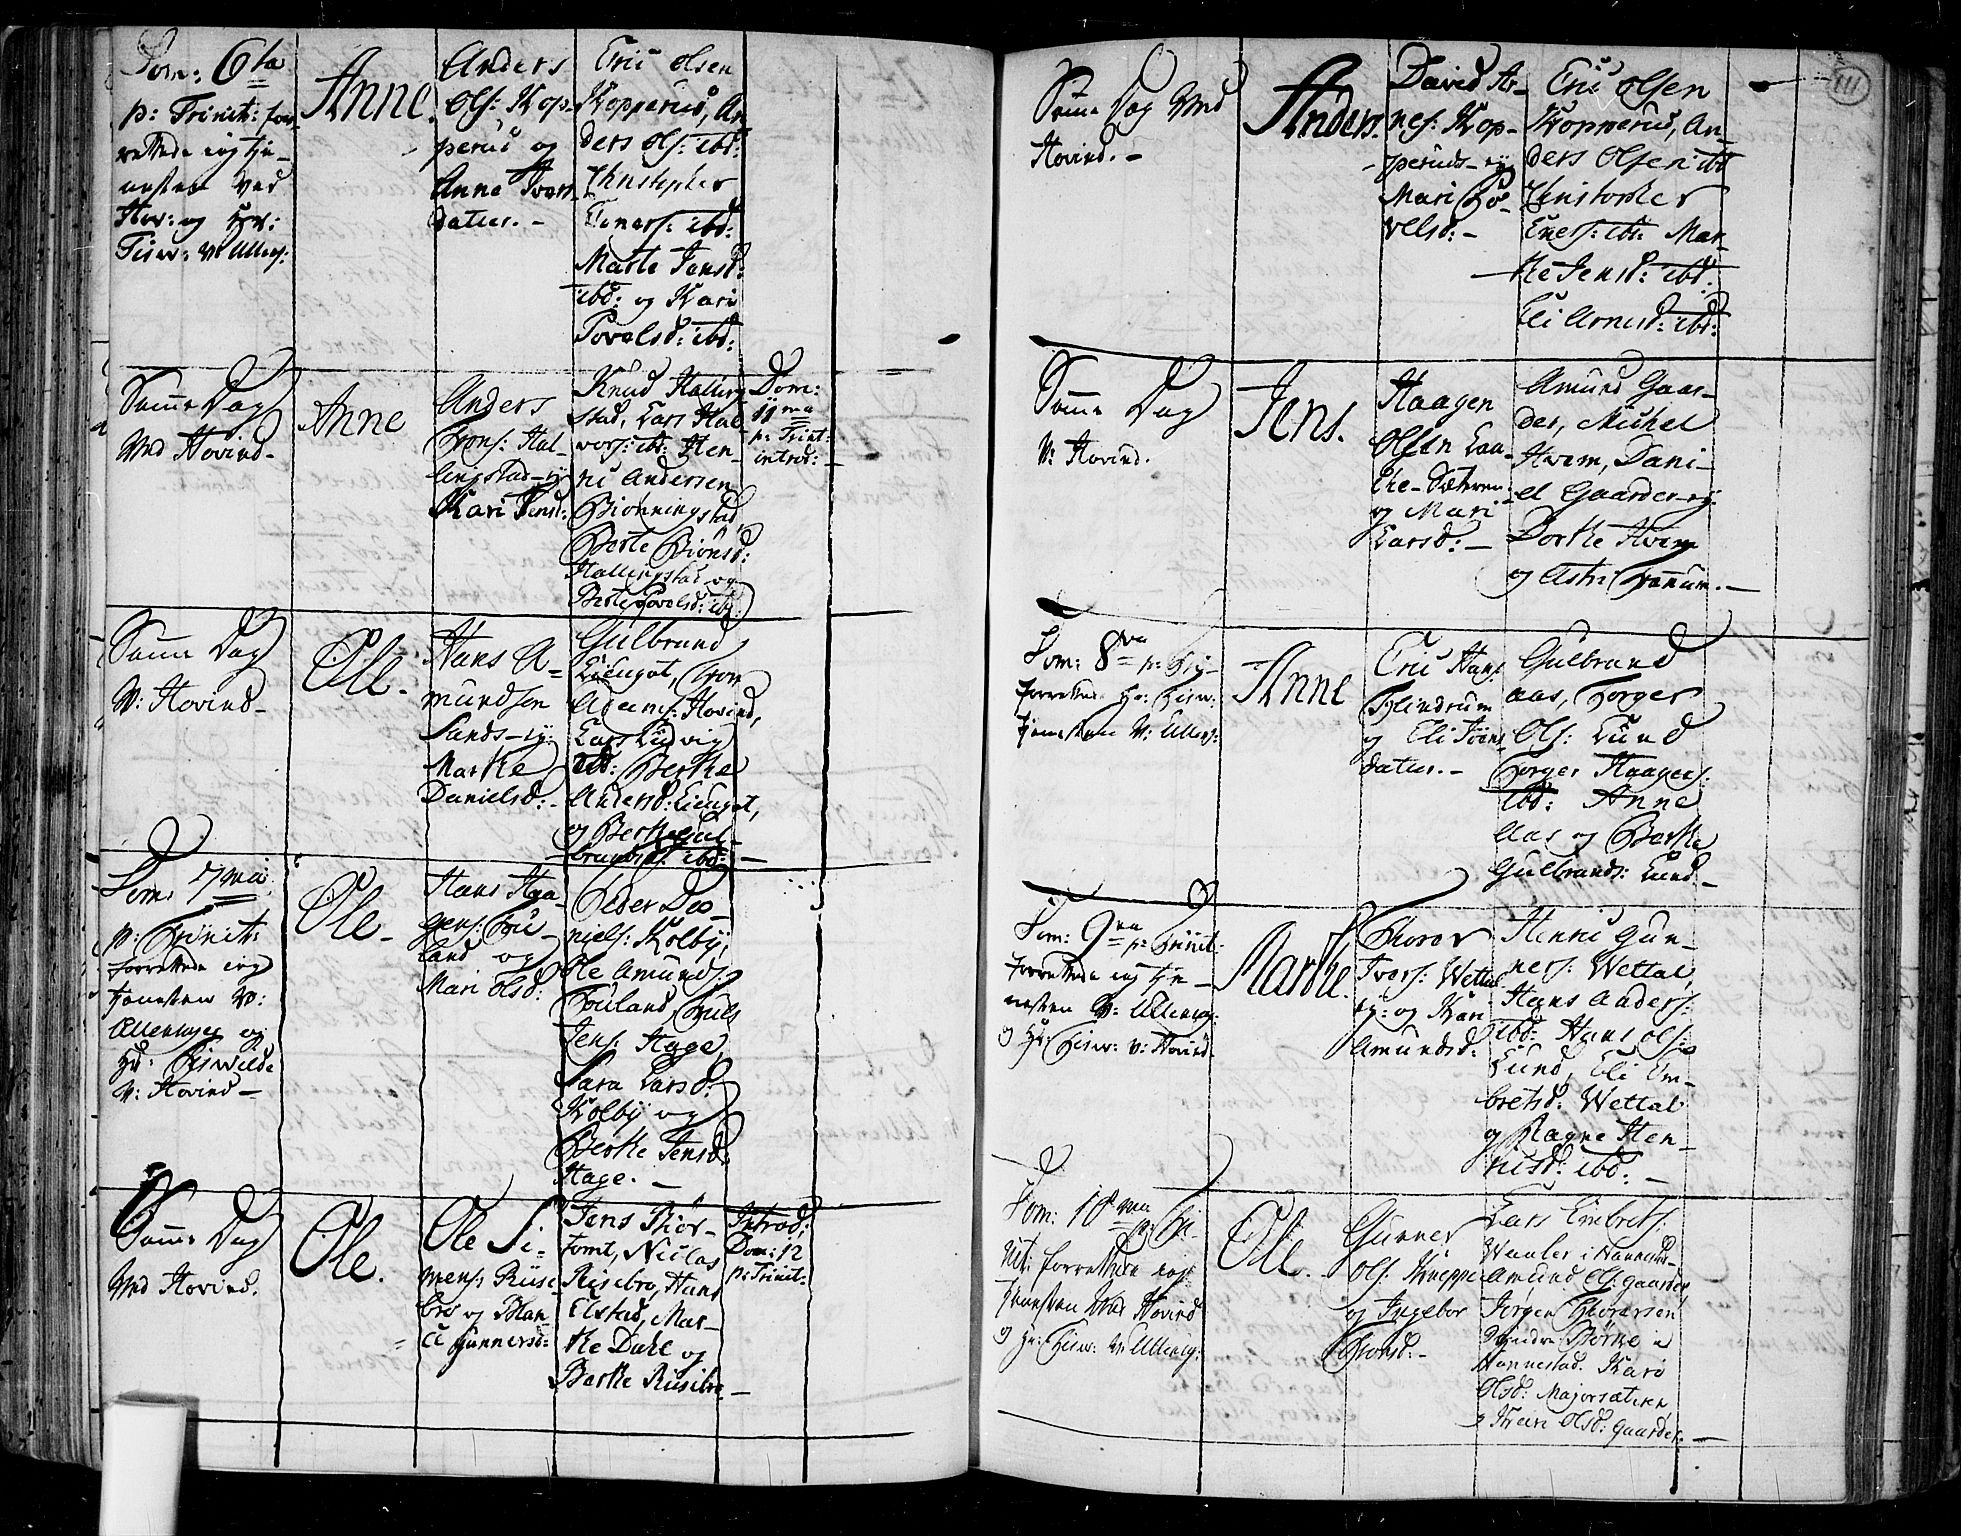 Dom: 6ta
p: Trinit: for-
rettede ieg tje-
nesten ved
Hov: og Hr:
Tisw: v: Ullens:
Anne.
Anders
Ols: Kop-
perud og
Anne Ivers
datter. -
Eric Olsen
Kopperud, An
ders Ols: ibd:
Christopher
Einers: ibd:
Marte Jensd:
ibd: og Kari
Povelsd: ibd:
Samme Dag
ved Hovind -
Anne
Anders
Trons: Hal-
lingstad - og
Kari Jensd:
Knud Halling
stad, Lars Hal
vors: ibd: Hen-
ric Andersen
Biønningstad,
Berte Biønsd:
Hallingstad og
Berte Povelsd: ibd:
Dom:
11ma
p: Trinit:
introd: -
Samme Dag
v: Hovind -
Ole.
Hans A=
mundsen
Sands - og:
Marthe
Danielsd: -
Gulbrand
Liengot, Tron
Adams: Hovind,
Lars Ludvig
ibd: Berthe
Andersd: Liengot,
og Berthe Gul-
brandsd: ibd: -
Dom: 7ma
p: Trinit:
forrettede ieg
tjenesten v:
Ullensager og
Hr: Tiswilde
v: Hovind -
Ole -
Hans Haa-
gens: Tru-
land og
Mari Olsd:
Peder Da-
niels: Kolby,
Ole Amunds:
Truland, Truls
Jens: Hage,
Sara Larsd:
Kolby og
Berthe Jensd:
Hage. -
Samme Dag
ved Hovind.
Ole.
Ole Si-
mens: Riise
bro og Man-
= Gunnersd:
Jens Biør-
tomt, Niclas
Risebro, Hans
Elstad, Mar-
the Dahl og
Berthe Risebro -
Introd:
Dom: 12
p: Trinit:
111
Samme Dag ved
Hovind. -
Anders.
David Ar-
nes: Kop-
peruds - og
Mari Po-
velsd: -
Eric Olsen
Kopperud, An-
ders Olsen ibd
Christopher
Eners: ibd: Mar-
the Jensd: ibd:
Eli Arnesd: ibd:
Samme Dag
v: Hovind.
Jens.
Haagen
Olsen Laa-
che - Sæteren
og Mari
Larsd: -
Amund Gaar-
der, Michel
Hvam, Dani-
el Gaarder - og
Dorthe Hvam
og Astri -
Dom: 8va p: Tri-
forrettede Hr: Tisw:
tjenesten v: Ullens:
Anne
Eric Hans:
og Eli Ivers
datter. -
Gulbrand
aas, Torger
Ols: Lund
Torger Haagens:
ibd: Anne
Aas og Berthe
Gulbrands: Lund -
Dom: 9na p: Trinit:
forrettede ieg tje-
nesten v: Ullens:
og Hr: Tisw: v: Hovind.
Marthe.
Thorer
Ivers: Wettal
og: og Kari
Amundsd:
Henric Gun-
ners: Wettal,
Hans Anders:
ibd: Hans Ols:
Lund, Eli Em-
bretsd: Wettal
og Ragne Hen-
ricsd: ibd: -
Dom: 10ma p: Tri-
nit: forrettede ieg
tjenesten ved Hovind
og Hr: Tisw: v: Ullens:
Ole.
Gunner
Ols: Kneppe
og Ingebor
Tronsd: -
Lars Embrets:
Waaler i Nannestad
Amund Ols: Gaarder
Jørgen Thoresen
Børke i
Nannestad. Kari
Olsd: Majorsæteren
og Kari Olsd: Gaarder. -